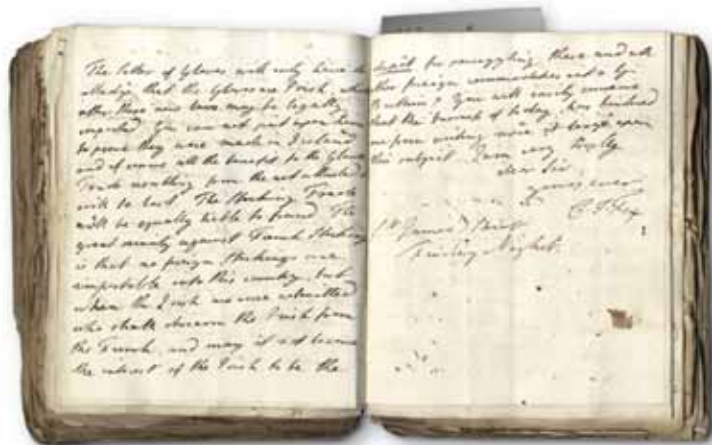 The seller of Gloves will only have to
alledge that the Gloves are Irish, when
after these new laws may be legally
imported. You can not put upon him
to prove they were made in Ireland
and of course all the benefit to the Glove
Trade resulting from the act alluded
will be lost. The Stocking Trade
will be equally liable to fraud. The
great security against French Stockings
is that no foreign Stockings are
importable into this country, but
when the Irish ones are admitted
who shall discern the Irish from
the French, and may it not become
the interest of the Irish to be the
depôt for smuggling these and all
other foreign commodities
Britain? You will easily conceive
that the hurry of today has hindered
me from writing more at large upon
this subject. I am very truly
dear Sir
yours ever
C. J. Fox
St James's Street
Tuesday Night.